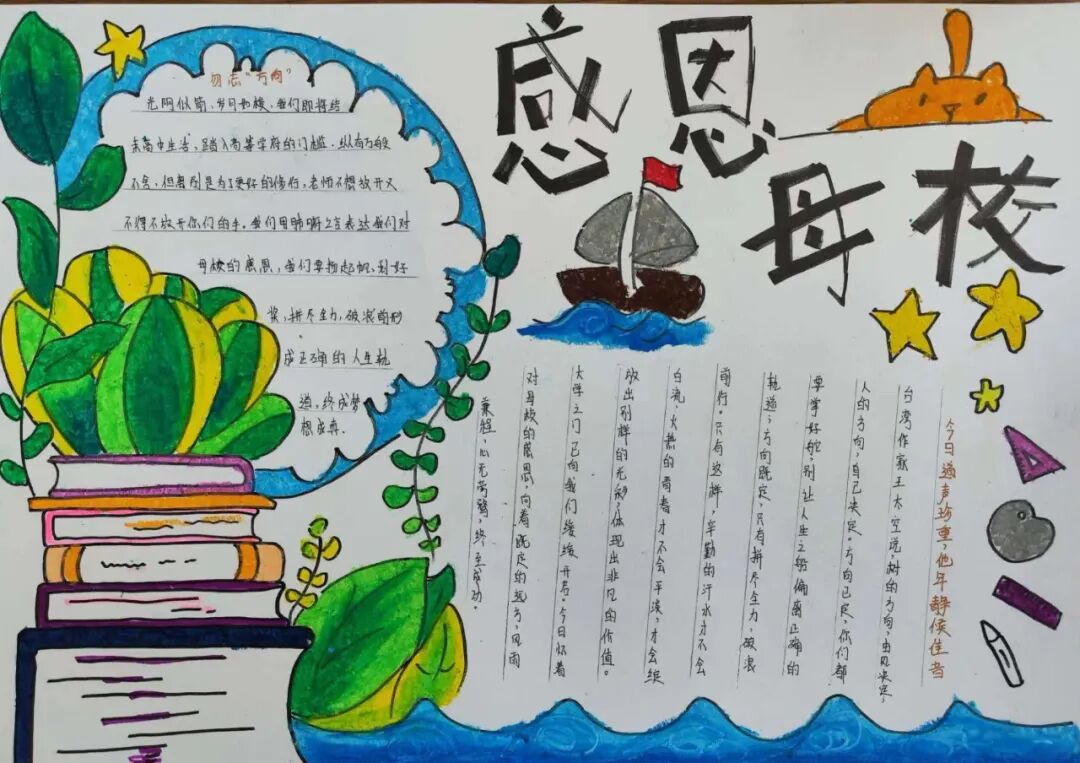 感恩
母校
勿忘“方向”
光阴似箭、岁月如梭、我们即将结
束高中生活,踏入高等学府的门槛.纵有万般
不舍,但离别是为了更好的修行,老师不想放开又
不得不放开你们的手。我们用肺腑之言表达我们对
母校的感恩,我们要扬起帆,划好
桨,拼尽全力,破浪前形
成正确的人生轨
道,终成梦
想成真.
今日道声珍重,他年静候佳音
台湾作家王大空说,树的方向,由风决定,
人的方向,自己决定。方向已定,你们都
要掌好舵,别让人生之船偏离正确的
轨道;方向既定,只有拼尽全力,破浪
前行。只有这样,辛勤的汗水才不会
白流,火热的青春才不会平淡,才会绽
放出别样的光彩,体现出非凡的价值。
大学之门已向我们缓缓开启。今日怀着
对母校的感恩,向着既定的远方,风雨
兼程,心无旁骛,终至成功。